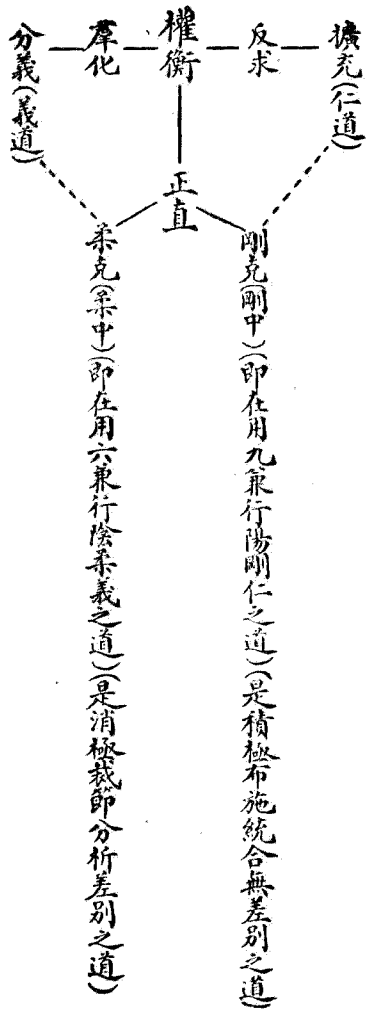 擴充(仁道)
反求
權衡
羣化
分義(義道)
正直
剛克(剛中)(即在用九兼行陽剛仁之道)(是積極布施統合無差別之道)
柔克(柔中)(即在用六兼行陰柔義之道)(是消極裁節分析差別之道)